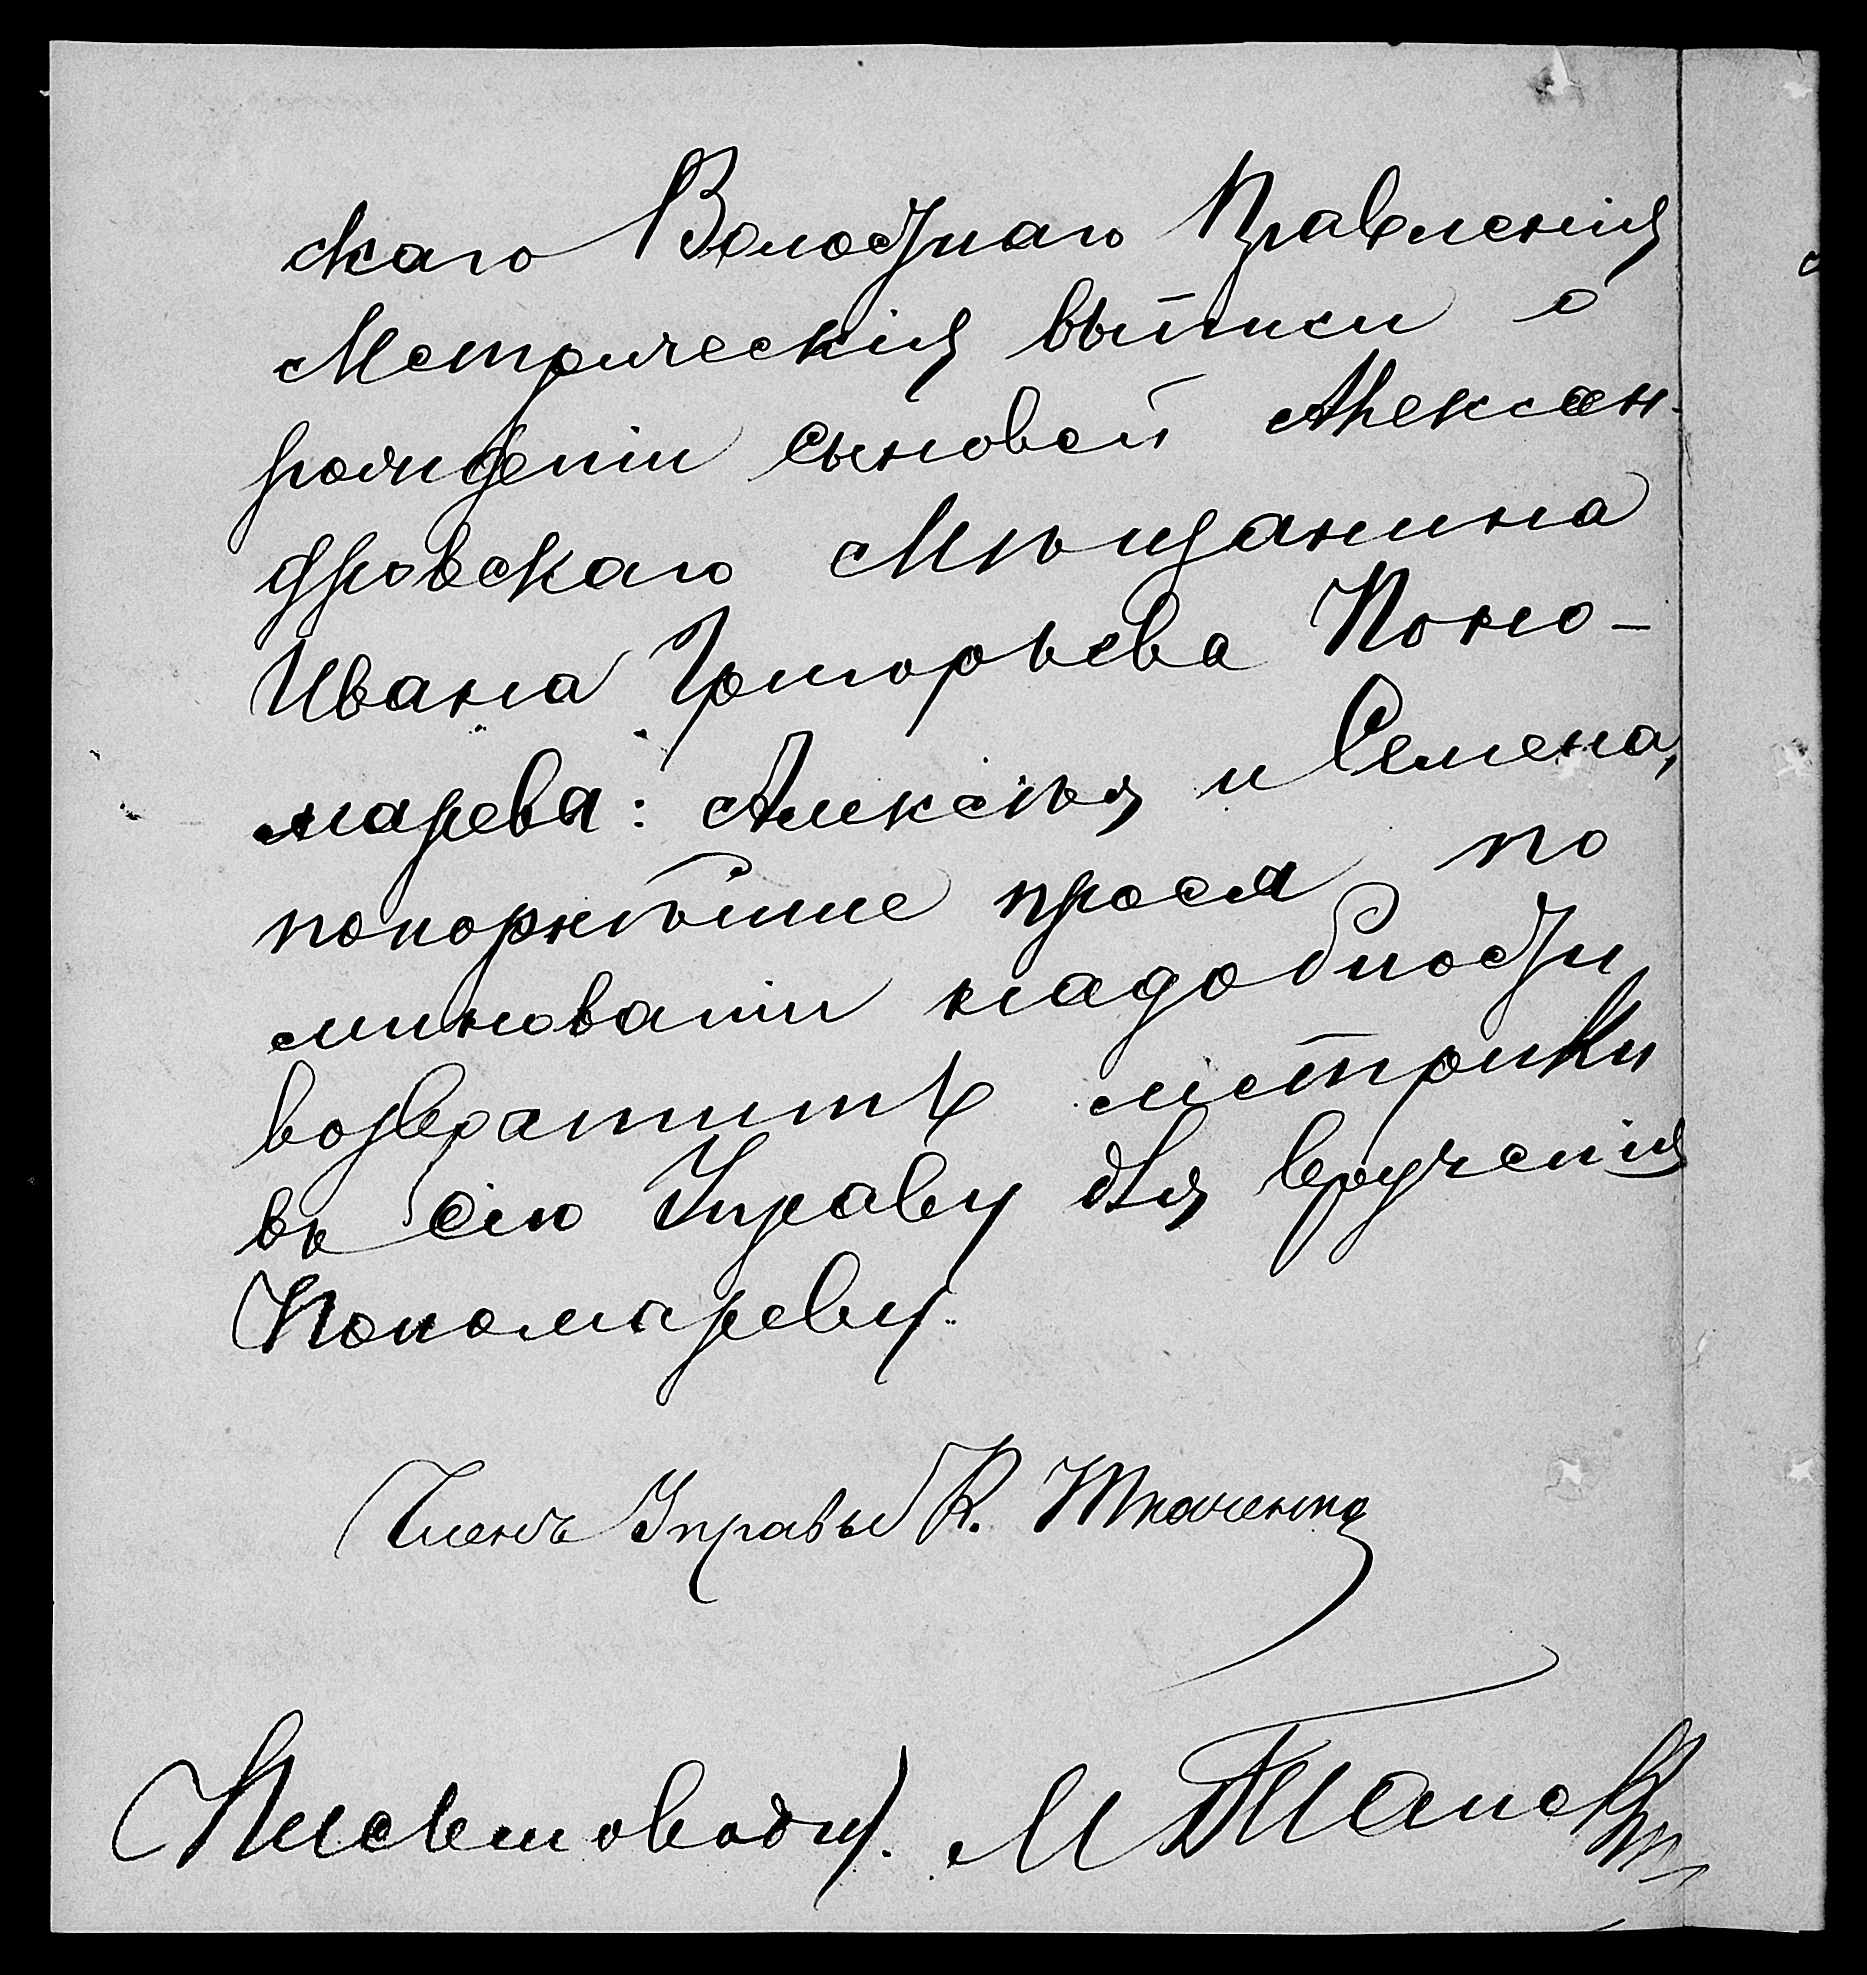 скаго Волостнаго Правленія
Метрическія выписи о
рожденіи сыновей Алексан-
дровскаго мѣщанина
Ивана Григорьева Поно-
марева: Алексѣя и Семена,
покорнѣйше прося по
минованіи надобности
возвратить метрики
въ сію Управу для врученія
Пономареву.
Членъ Управы К. Ткаченко
Письмоводи. М